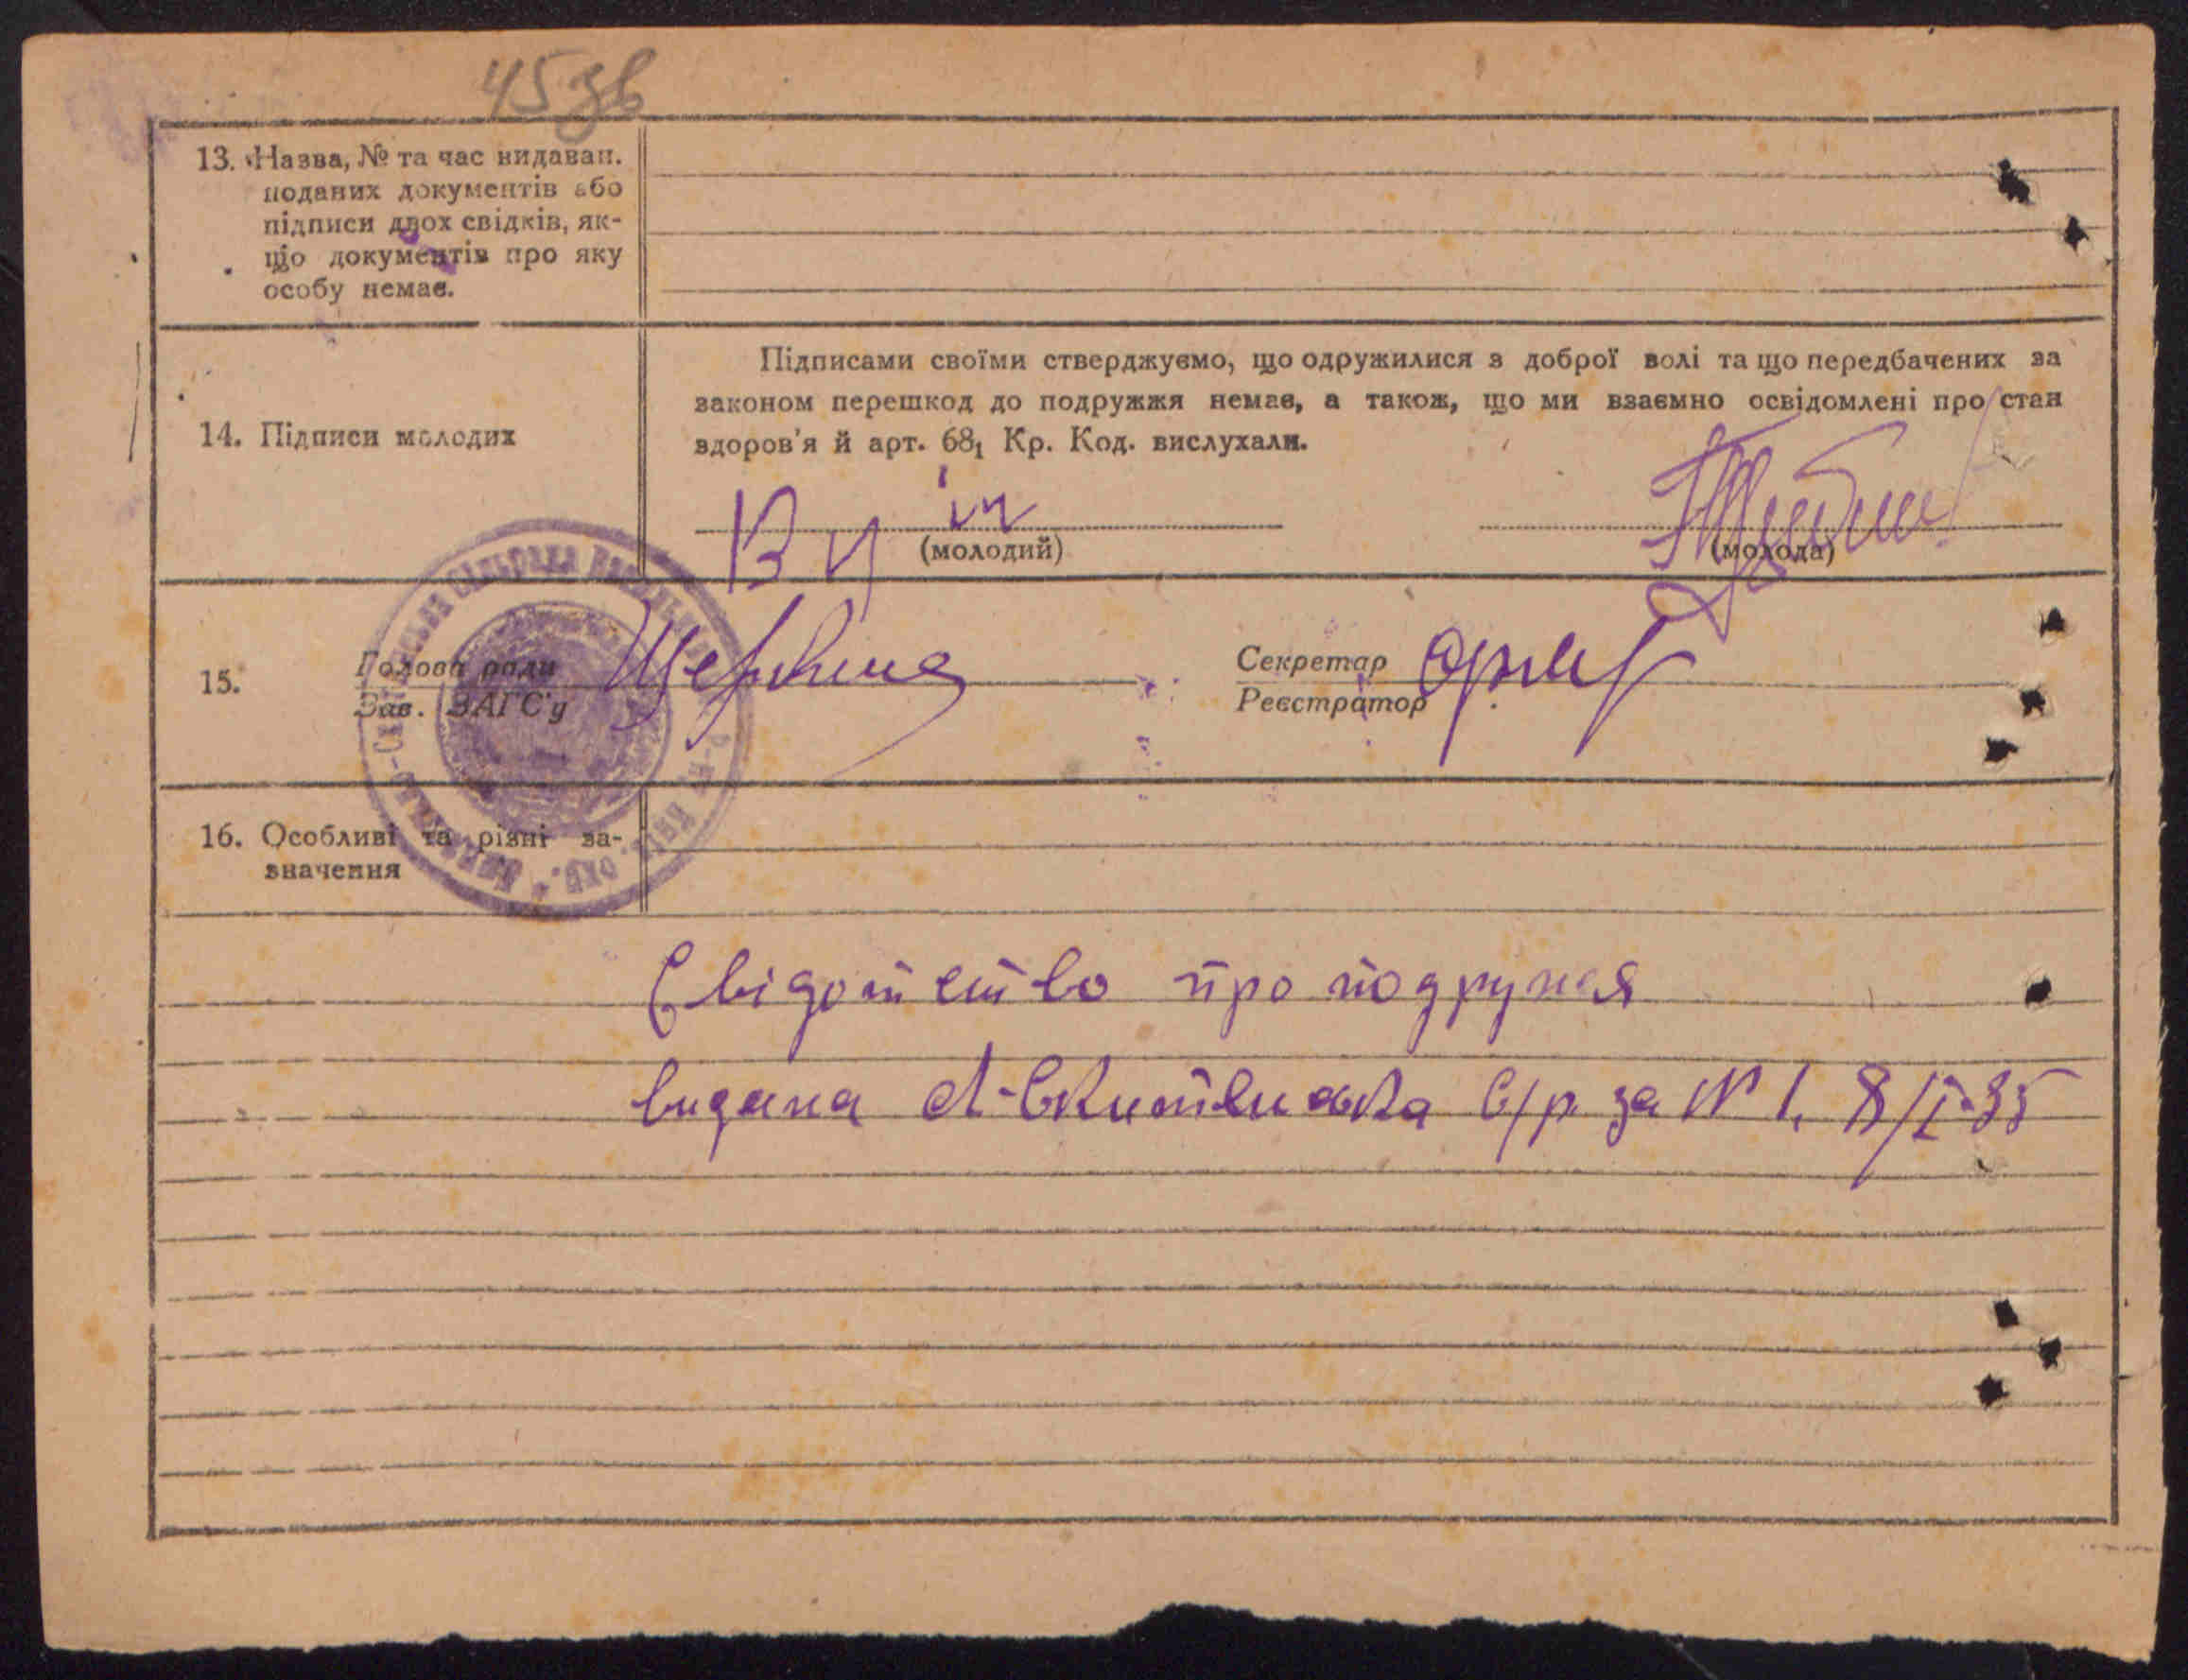 45 зв
13. Назва, № та час видаван.
поданих документів або
підписи двох свідків, як-
що документів про яку
особу немає.
14. Підписи молодих
Підписами своїми стверджуємо, що одружилися з доброї волі та що передбачених за
законом перешкод до подружжя немає, а також, що ми взаємно освідомлені про стан
здоров'я й арт. 68₁ Кр. Код. вислухали.
(молодий)
(молода)
15.
Голова ради
Зав. ЗАГС'у
Секретар
Реєстратор
16. Особливі та різні за-
значення
Свідотство про подружя
видана
с/р за № 1, 8/I-35